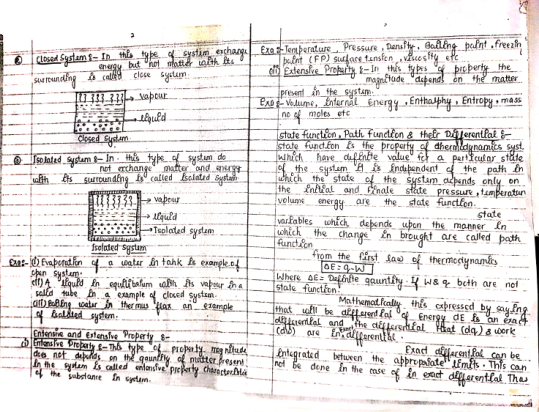 2
Closed System :- In this type of system exchange
energy but not matter with its
surrounding is called close system.
vapour
liquid
Closed System
Isolated system :- In this type of system do
not exchange matter and energy
with its surrounding is called Isolated System
vapour
liquid
Isolated system
Isolated System
Exa :- (i) Evaporation of a water in tank is example of
open system.
(ii) A liquid in equilibrium with its vapour in a
tube is a example of closed system.
(iii) Boiling water in thermus flax an example
of isolated system.
Entensive and extensive Property :-
(i) Entensive Property :- This type of property magnitude
does not depends on the quantity of matter present
in the system is called entensive property
of the substance in system.
Exa :- Temperature, Pressure, Density, Boiling point, freezin
point (FP) surface tension, viscosity etc
(ii) Extensive Property :- In this types of property the
magnitude depends on the matter
present in the system.
Exa :- Volume, Internal Energy, Enthalphy, Entropy, mass
no of moles etc
state function, Path function & their Differential :-
state function is the property of thermodynamics syst
which have definite value for a perticular state
of the system it is independent of the path in
which the state of the system depends only on
the initial and finale state pressure, temperature
volume energy are the state function.
state
variables which depends upon the manner in
which the change in brought are called path
function
from the first law of thermodynamics
ΔE = q-W
Where ΔE = Definite qauntity. if W & q both are not
state function.
Mathematically this expressed by saying
that will be differential of Energy dE is an exact
differential and the differential Heat (dq) & work
(dw) are in exact differential.
Exact differential can be
integrated between the appropriate limits. This can
not be done in the case of in exact differential